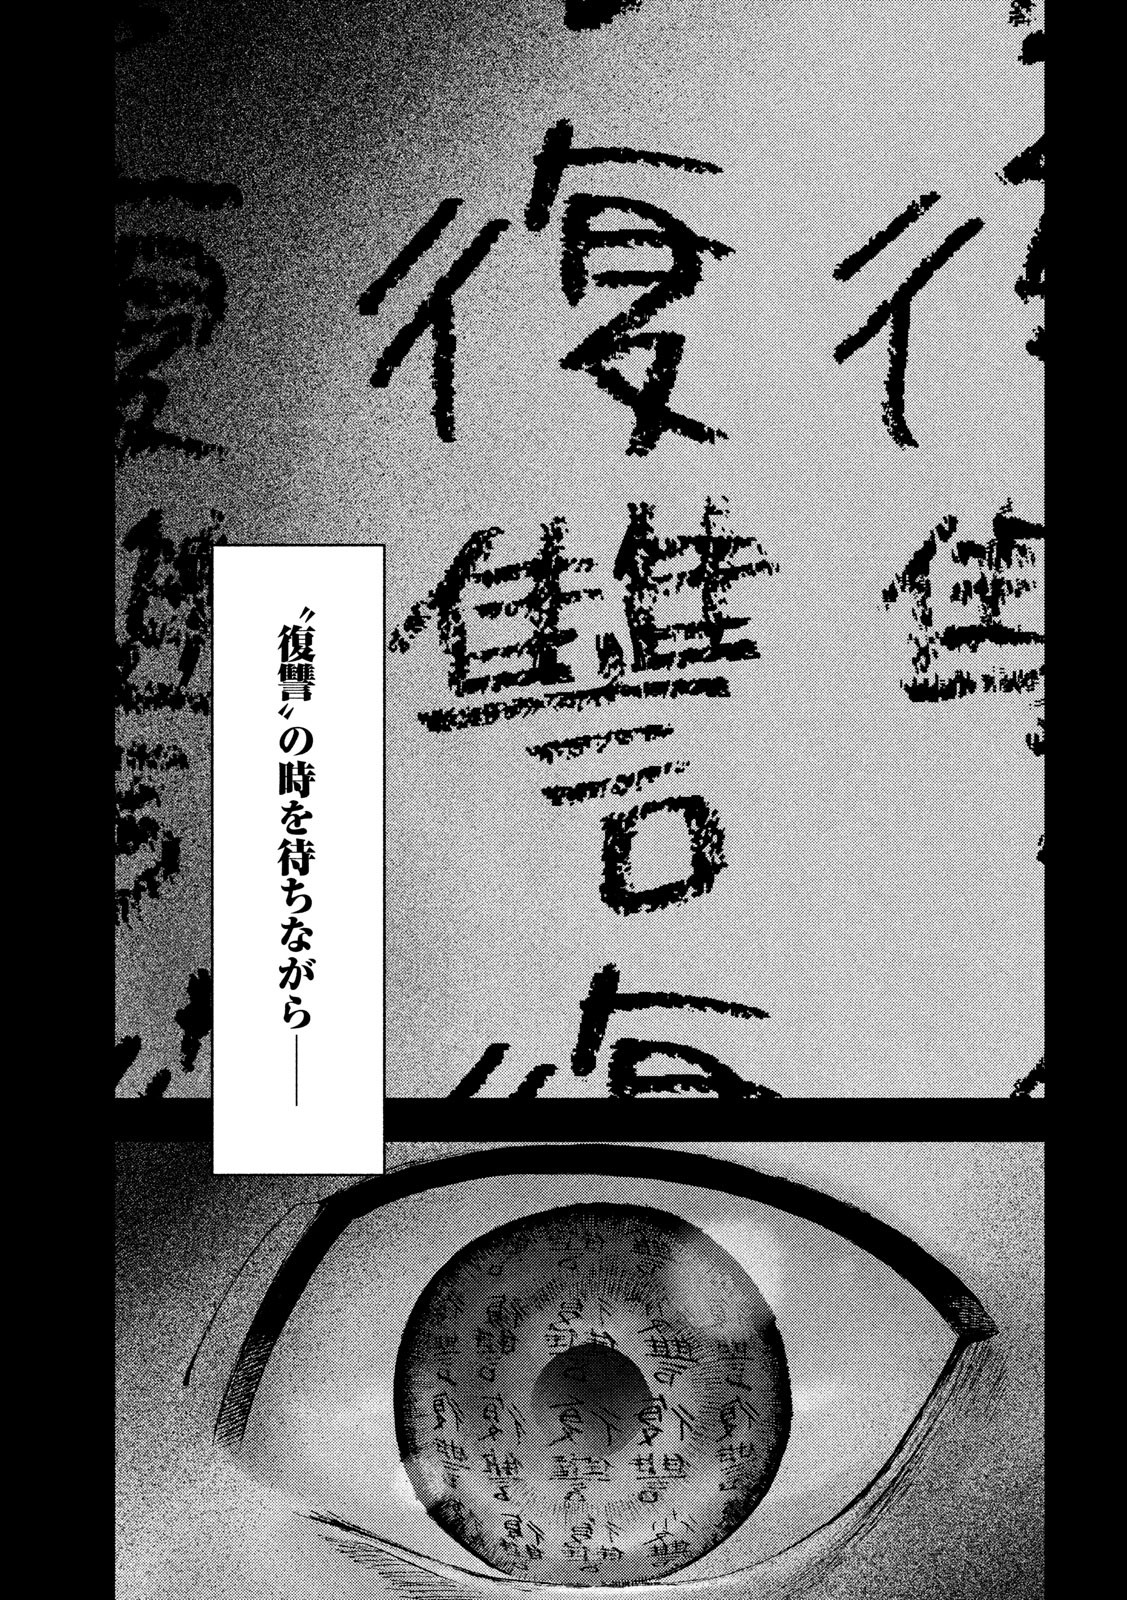 復讐
〝復讐〟の時を待ちながら――